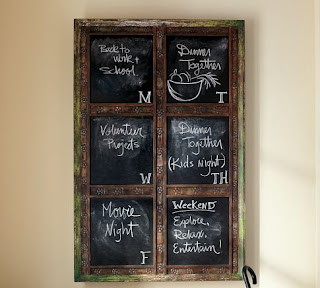 Back to
Work +
School
M
Dinner
Together
T
Volunteer
Projects
W
Dinner
Together
(Kids night)
TH
Movie
Night
F
WEEKEND
Explore.
Relax.
Entertain!